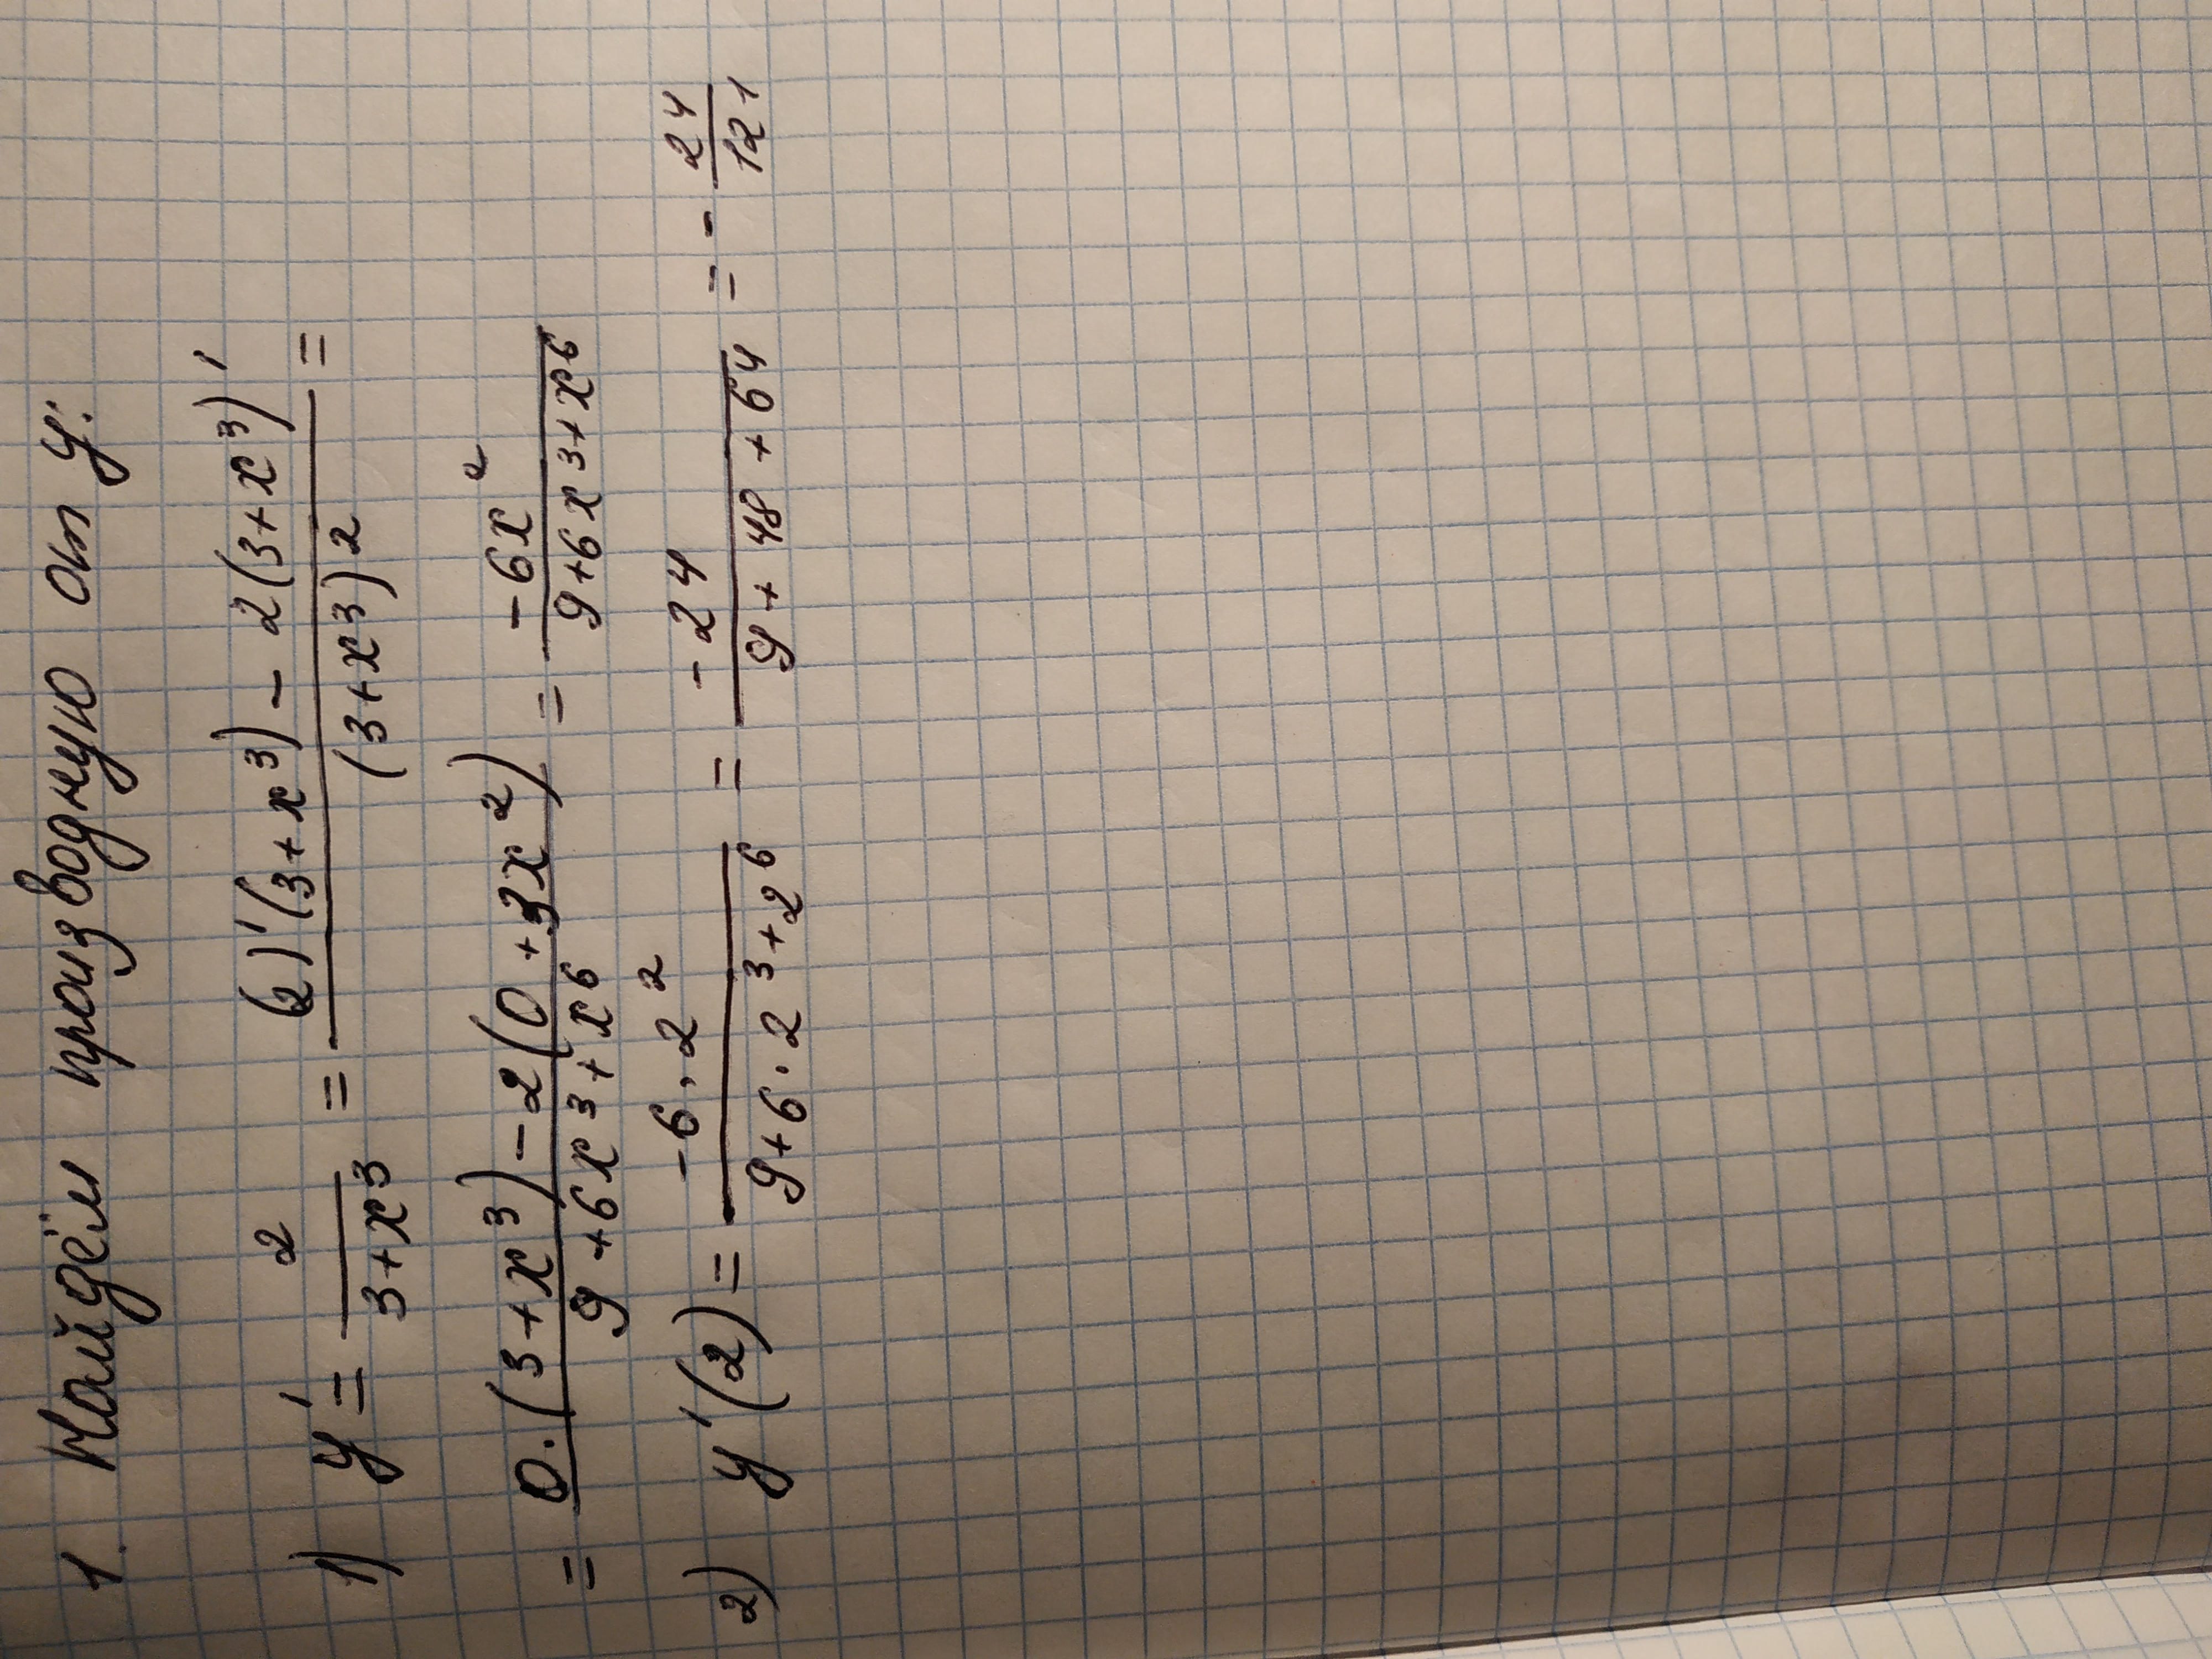 1. Найдём производную от y:
1) y' = 2/(3+x³) = ((2)'(3+x³) - 2(3+x³)')/(3+x³)² =
= (0·(3+x³) - 2(0+3x²))/(9+6x³+x⁶) = (-6x²)/(9+6x³+x⁶)
2) y'(2) = (-6·2²)/(9+6·2³+2⁶) = (-24)/(9+48+64) = -24/121